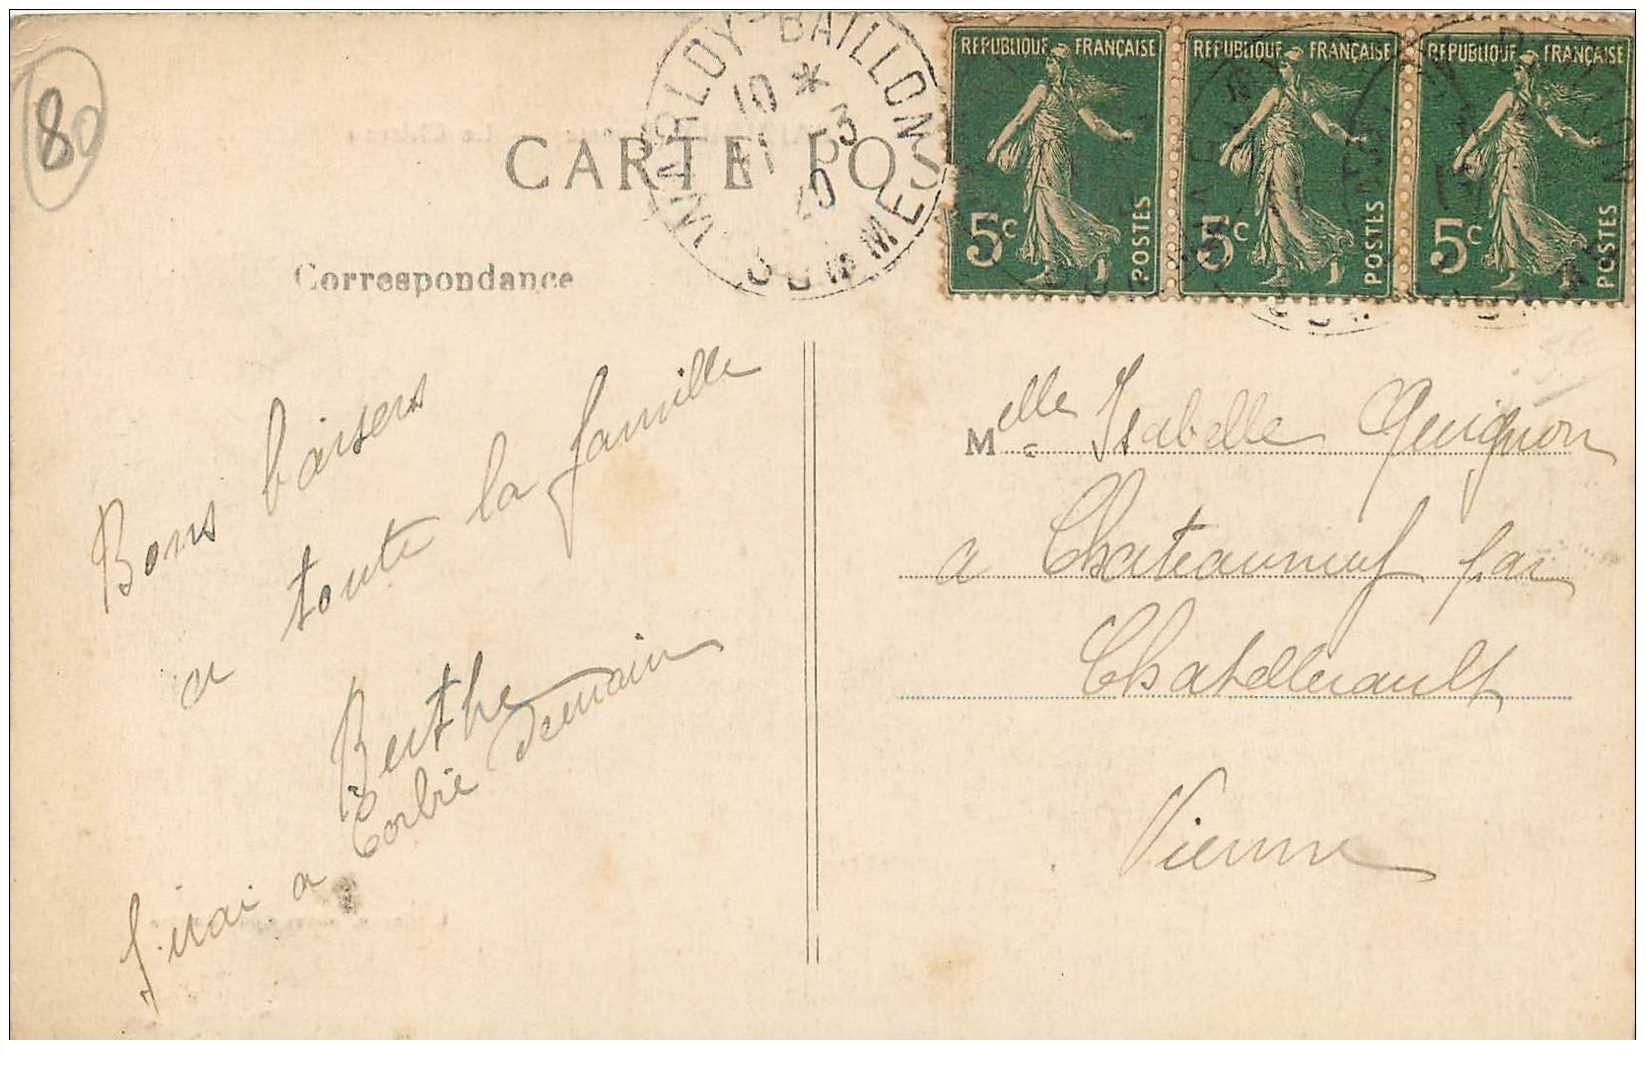 80
WARLOY-BAILLON
10 *
11 - 3
20
SOMME
CARTE POS
REPUBLIQUE FRANÇAISE
5c
POSTES
REPUBLIQUE FRANÇAISE
5c
POSTES
REPUBLIQUE FRANÇAISE
5c
POSTES
Correspondance
Bons baisers
a toute la famille
Berthe
J'irai a Corbie demain
Melle Isabelle Quignon
a Chateauneuf par
Chatellerault
Vienne